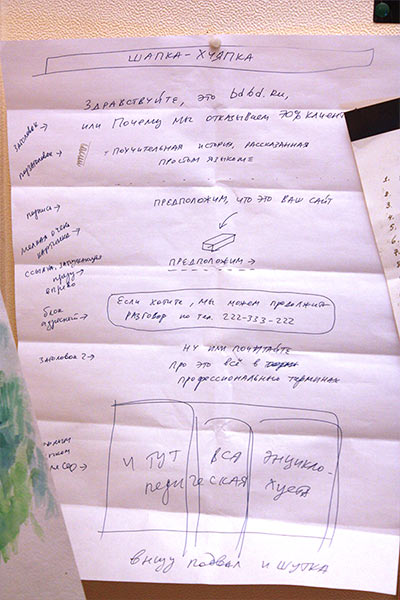 ШАПКА-ХУЯПКА
ЗДРАВСТВУЙТЕ, ЭТО bdbd.ru,
заголовок → ИЛИ ПОЧЕМУ МЫ ОТКАЗЫВАЕМ 70% КЛИЕНТ
подзаголовок → = ПОУЧИТЕЛЬНАЯ ИСТОРИЯ, РАССКАЗАННАЯ
ПРОСТЫМ ЯЗЫКОМ =
подпись → ПРЕДПОЛОЖИМ, ЧТО ЭТО ВАШ САЙТ
мелкая очень
картинка →
ссылка,
→ ПРЕДПОЛОЖИМ →
вправо
блок
адресный → ЕСЛИ ХОТИТЕ, МЫ МОЖЕМ ПРОДОЛЖИТЬ
РАЗГОВОР ПО ТЕЛ. 222-333-222
ЗАГОЛОВОК 2 → НУ ИЛИ ПОЧИТАЙТЕ
ПРО ЭТО ВСЁ В
ПРОФЕССИОНАЛЬНЫХ ТЕРМИНАХ
И ТУТ ВСЯ ЭНЦИКЛО-
ПЕДИЧЕСКАЯ ХУЕТА
ВНИЗУ ПОДВАЛ И ШУТКА
1.
2.
3.
4.
5.
6.
7.
8.